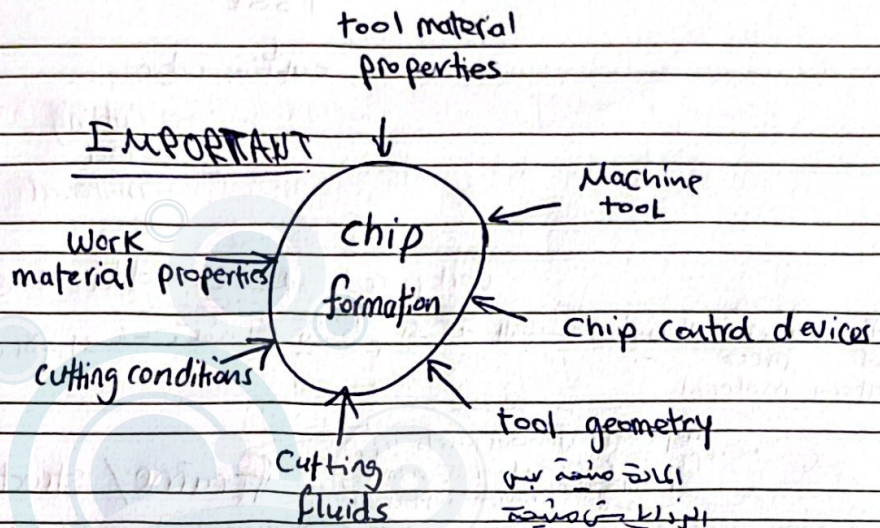 tool material
properties
IMPORTANT
Machine
tool
Work
material properties
chip
formation
Chip control devices
cutting conditions
tool geometry
Cutting
fluids
المادة منيحة بس